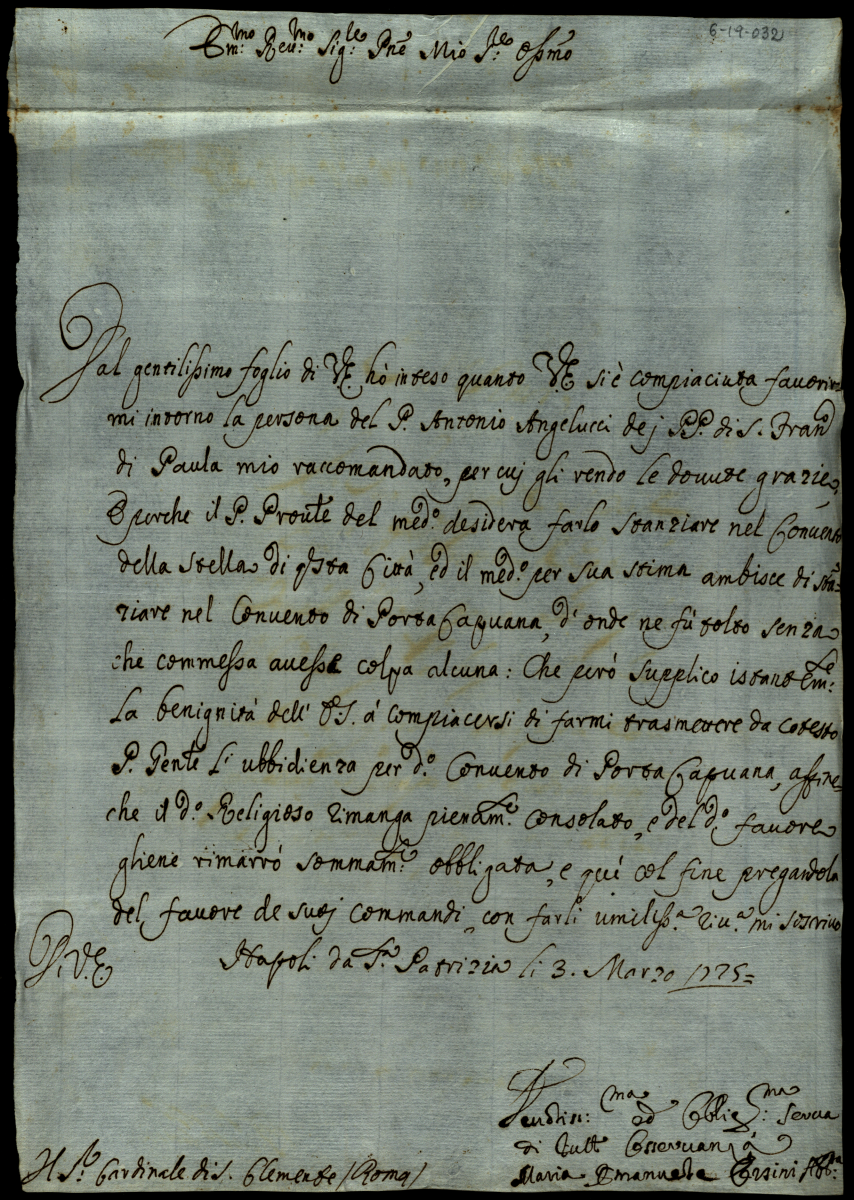 6-19-032
Em:mo Reu:mo Sig:re Pne Mio Sre Ossmo
Dal gentilissimo foglio di VE hò inteso quanto VE si è compiaciuta fauorir
mi intorno la persona del P. Antonio Angelucci dej PP. di S. Fran.co
di Paula mio raccomandato, per cuj gli rendo le douute grazie,
E perche il P. Pronle del med.o desidera farlo stanziare nel Conuento
della Stella di qsta Città, ed il med.o per sua stima ambisce di stan=
ziare nel Conuento di Porta Capuana, d'onde ne fù tolto senza
che commessa auesse colpa alcuna: Che però supplico istantem:te
La benignità dell' E.S. à compiacersi di farmi trasmettere da cotesto
P. Genle L'ubbidienza per d.o Conuento di Porta Capuana, affin=
che il d.o Religioso rimanga pienam:te consolato, e del d.o fauore
gliene rimarrò sommam:te obbligata, e quì col fine pregandola
del fauore de suoj commandi, con farli umiliss.a riu.a mi soscriuo
Di V.E. Napoli da S.a Patrizia li 3. Marzo 1775=
Deuotiss:ma ed Obblig:ma Serua
di tutt' Osseruanza
Maria Emanuela Orsini Abb.a
Il S.r Cardinale di S. Clemente (Roma)